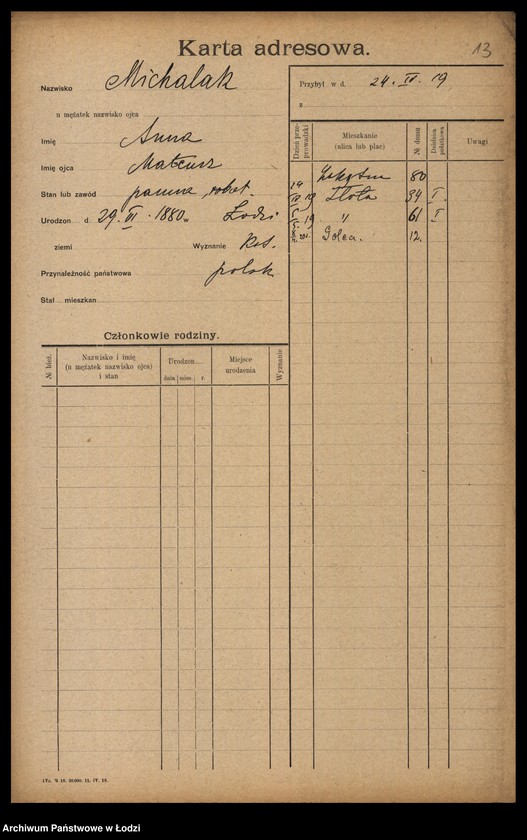 Karta adresowa.
13
Nazwisko Michalak
u mężatek nazwisko ojca
Imię Anna
Imię ojca Mateusz
Stan lub zawód panna, robot.
Urodzon d. 29. VI. 1880 w Łodzi
ziemi Wyznanie kat.
Przynależność państwowa polsk
Stał mieszkan
Przybył w d. 24. IV. 19
z
Dzień prze-prowadzki
Mieszkanie (ulica lub plac)
№ domu
Dzielnica podatkowa
Uwagi
80
19 Złota 34 I.
19 " 61 I
12.
Członkowie rodziny.
№ bież.
Nazwisko i imię
(u mężatek nazwisko ojca)
i stan
Urodzon
dnia mies. r.
Miejsce urodzenia
Wyznanie
Archiwum Państwowe w Łodzi